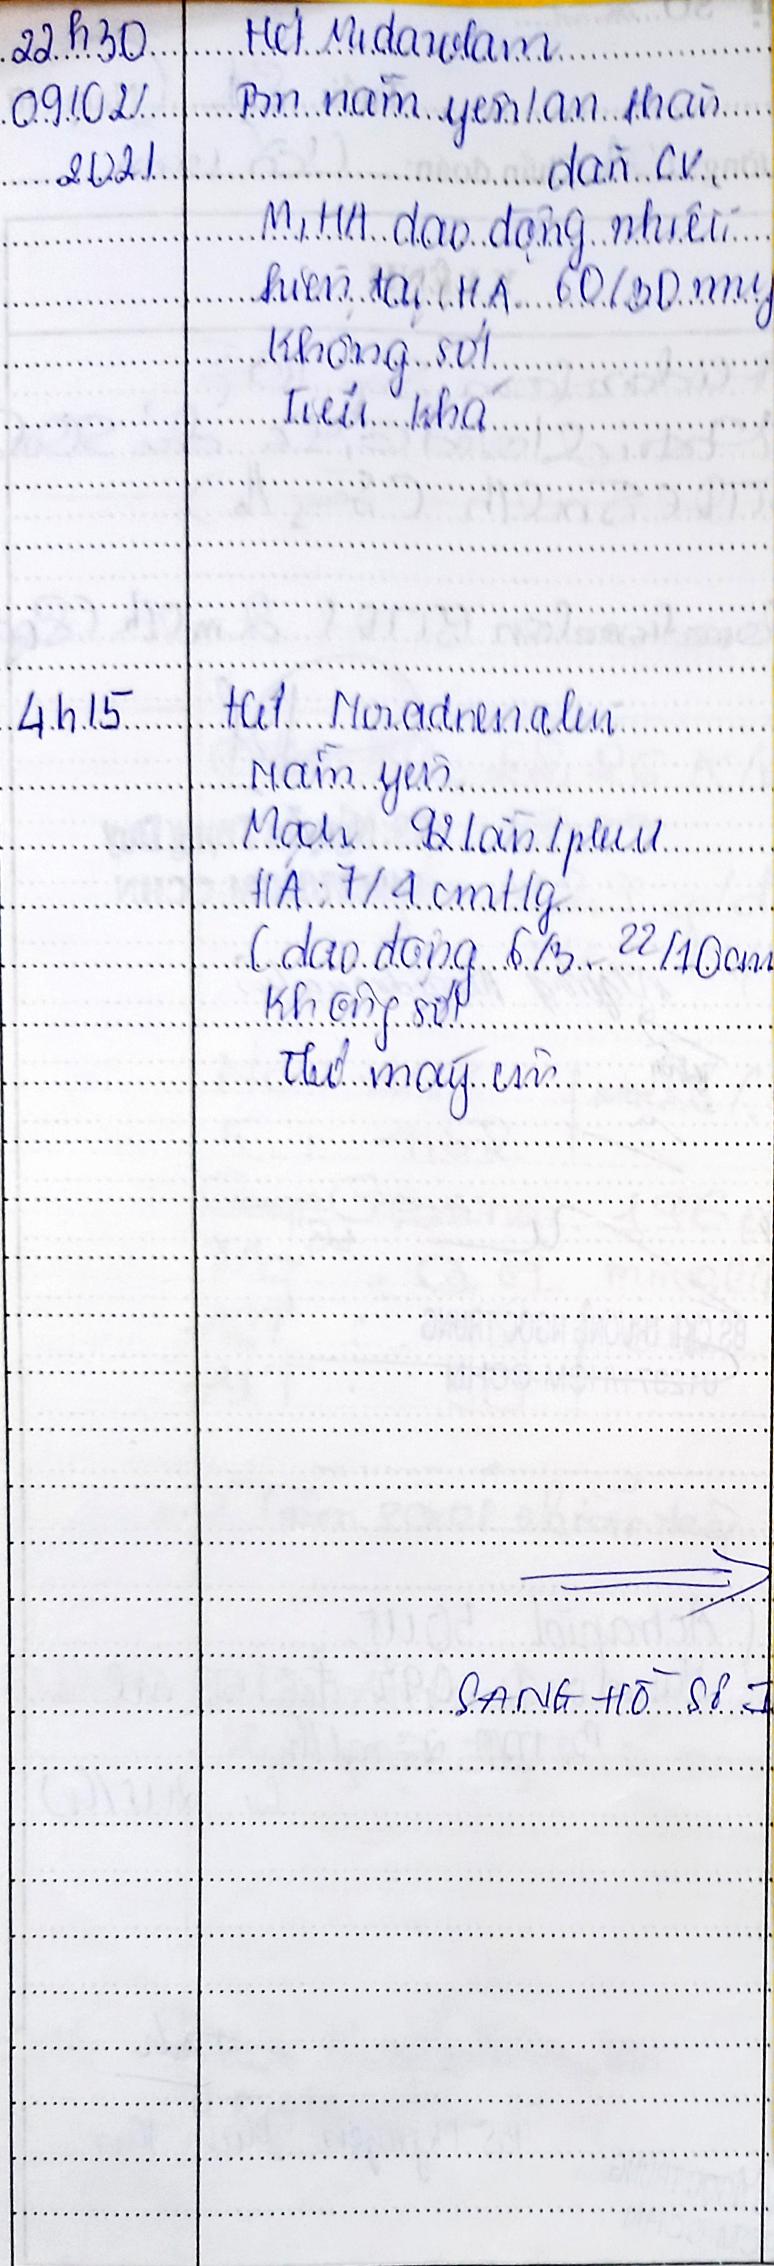 22h30 Hết Midazolam
09/02/ Bn nằm yên, an thần
2021 dãn cơ,
M, HA dao động nhiều
hiện tại HA 60/30 mm
Không sốt
Tiểu khá
4h15 Hết Noradrenalin
Nằm yên
Mạch 92 lần/phút
HA: 7/4 cmHg
(dao động 6/3 - 22/10cm
Không sốt
Thở máy
SANG HỒ SƠ I